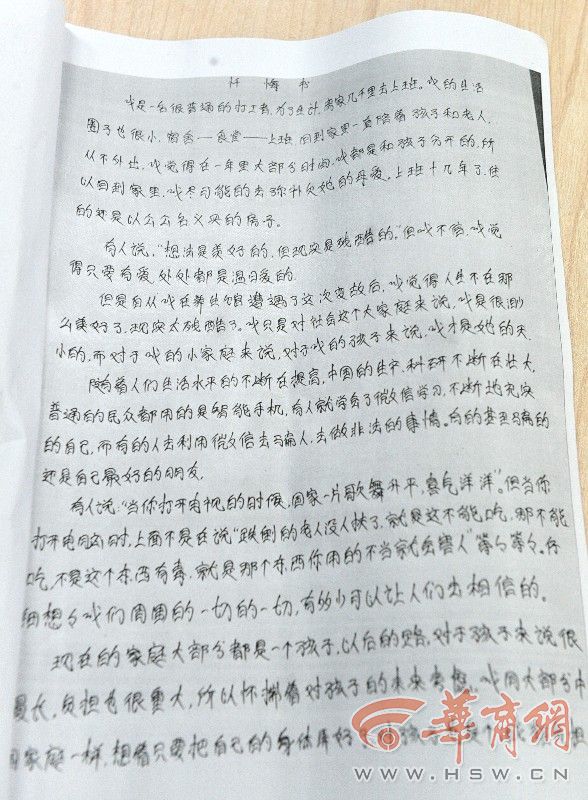 忏悔书
我是一名很普通的打工者,为了生计,离家几千里去上班。我的生活
圈子也很小,宿舍——食堂——上班,回到家里一直陪着孩子和老人,
从不外出,我觉得在一年里大部分时间,我都是和孩子分开的,所
以回到家里,我尽可能的去弥补欠她的母爱,上班十几年了,住
的还是以公公名义买的房子。
有人说,"想法是美好的,但现实是残酷的。"但我不信,我觉
得只要有爱,处处都是温暖的。
但是自从我在养生馆遭遇了这次变故后,我觉得人生不在那
么美好了,现实太残酷了。我只是对社会这个大家庭来说,我是很渺
小的,而对于我的小家庭来说,对于我的孩子来说,我才是她的天。
随着人们生活水平的不断在提高,中国的医疗、科研不断在壮大,
普通的民众都用的是智能手机,有人就学会了微信学习,不断地充实
的自己,而有的人去利用微信去骗人,去做非法的事情。有的甚至骗的
还是自己最好的朋友。
有人说:"当你打开电视的时候,国家一片歌舞升平,喜气洋洋"。但当你
打开电脑时,上面不是在说"跌倒的老人没人扶了,就是这不能吃,那不能
吃,不是这个东西有毒,就是那个东西你用的不当就会害人"等等等等。仔
细想想我们周围的一切的一切,有多少可以让人们去相信的。
现在的家庭大部分都是一个孩子,以后的路,对于孩子来说很
漫长,负担也很重大,所以怀揣着对孩子的未来考虑,我同大部分中
国家庭一样,想着只要把自己的身体养好,
華商網
WWW.HSW.CN